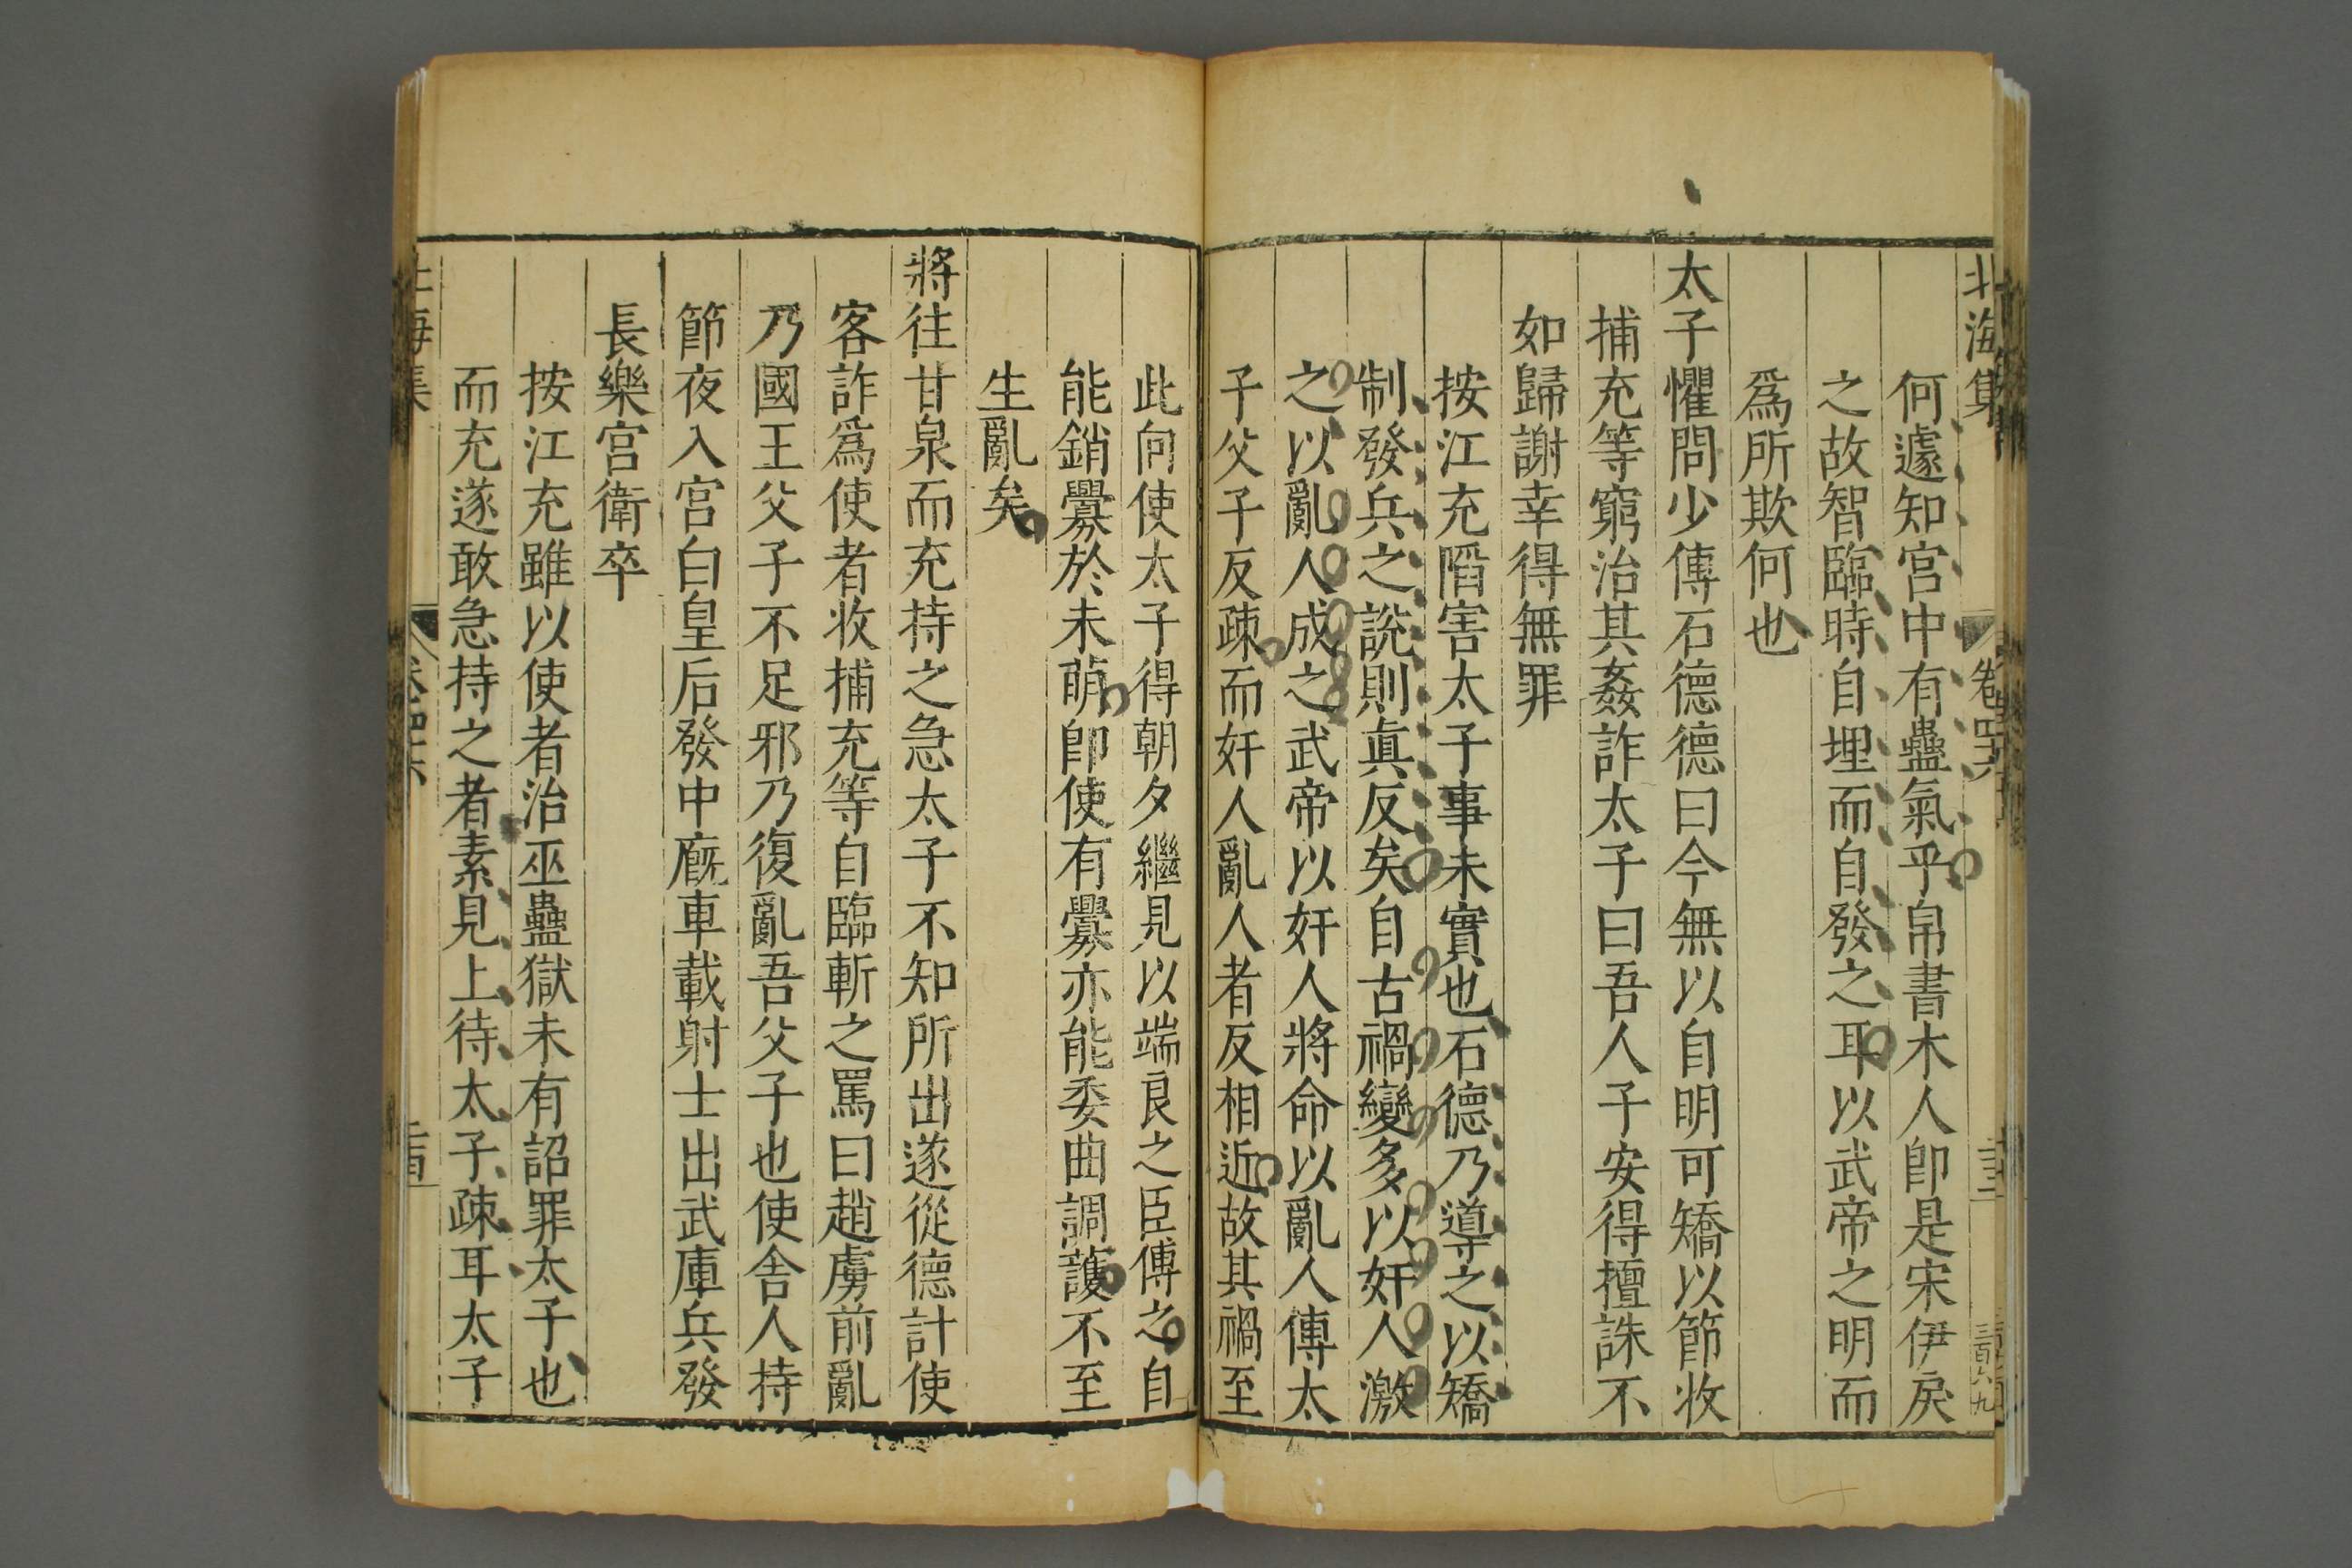 北海集
卷四六
三百六九
何遽知宮中有蠱氣乎帛書木人卽是宋伊戾
之故智臨時自埋而自發之耳以武帝之明而
爲所欺何也
太子懼問少傅石德德曰今無以自明可矯以節收
捕充等窮治其姦詐太子曰吾人子安得擅誅不
如歸謝幸得無罪
按江充陷害太子事未實也石德乃導之以矯
制發兵之說則眞反矣自古禍變多以奸人激
之以亂人成之武帝以奸人將命以亂人傅太
子父子反疎而奸人亂人者反相近故其禍至
此向使太子得朝夕繼見以端良之臣傅之自
能銷釁於未萌卽使有釁亦能委曲調護不至
生亂矣
將往甘泉而充持之急太子不知所出遂從德計使
客詐爲使者收捕充等自臨斬之罵曰趙虜前亂
乃國王父子不足邪乃復亂吾父子也使舍人持
節夜入宮白皇后發中廐車載射士出武庫兵發
長樂宮衛卒
按江充雖以使者治巫蠱獄未有詔罪太子也
而充遂敢急持之者素見上待太子疎耳太子